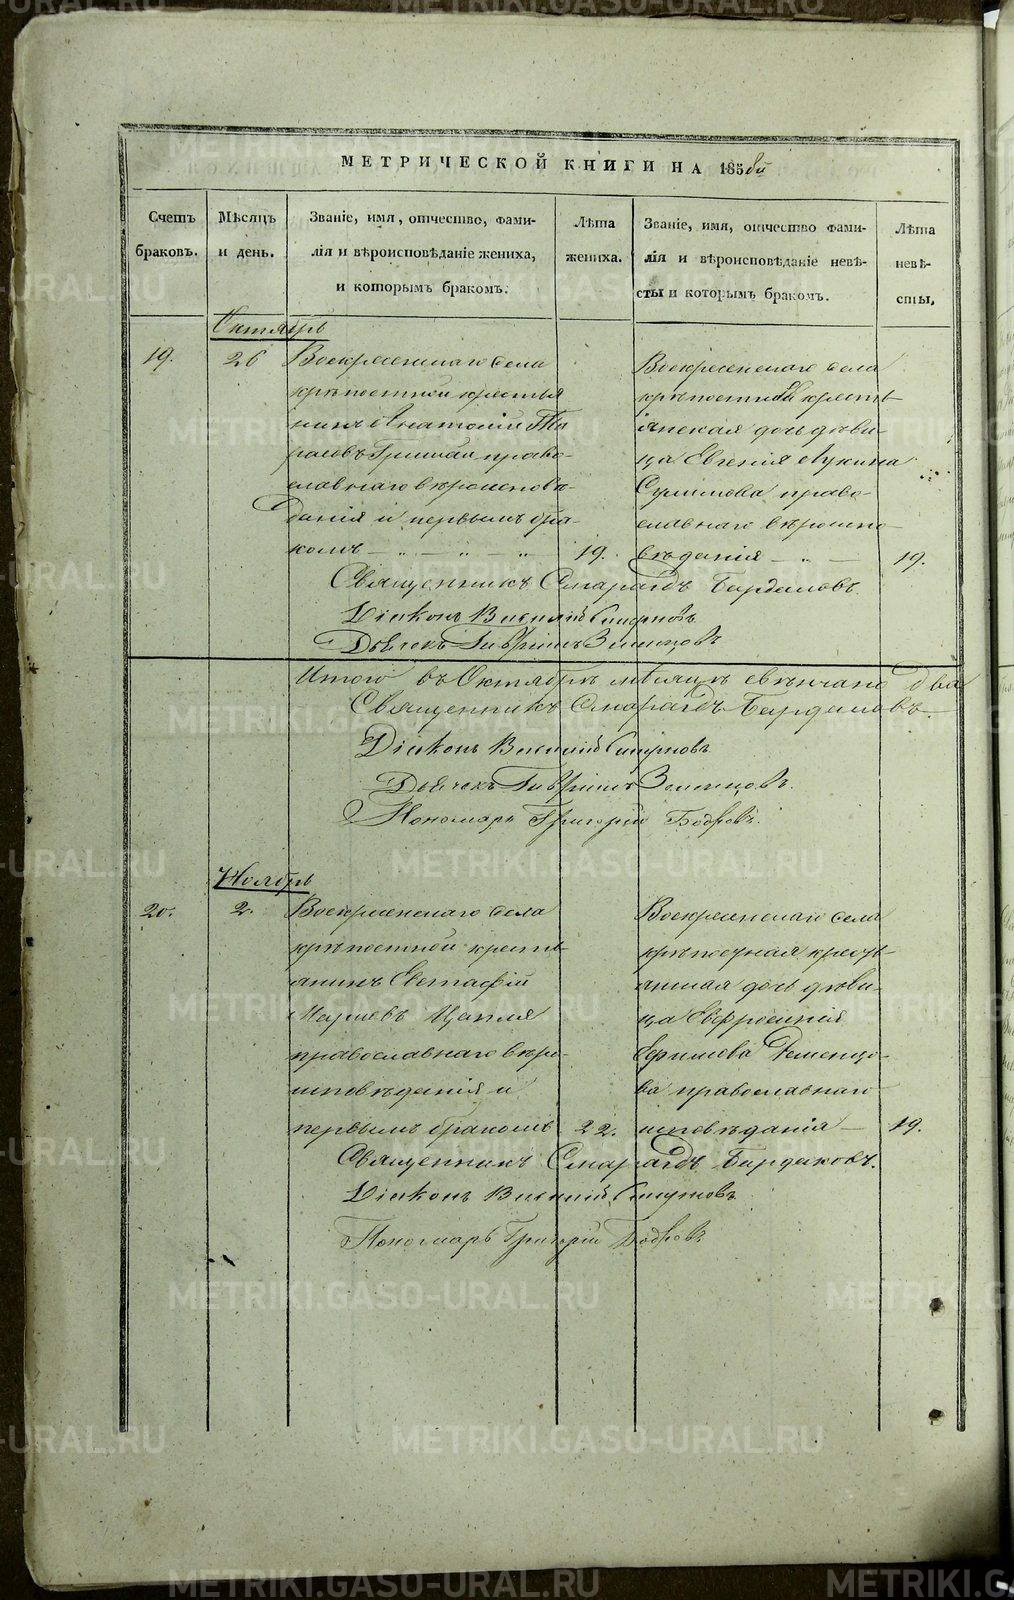 МЕТРИЧЕСКОЙ КНИГИ НА 1856й
Счетъ браковъ.
Мѣсяцъ и день.
Званіе, имя, отчество, фами-
лія и вѣроисповѣданіе жениха,
и которымъ бракомъ.
Лѣта
жениха.
Званіе, имя, отчество фами-
лія и вѣроисповѣданіе невѣ-
сты и которымъ бракомъ.
Лѣта
невѣ-
сты.
Октябрь
19.
26
Воскресенскаго села
крѣпостной крестья
нинъ Та
расовъ право-
славнаго вѣроисповѣ-
данія и первымъ бра-
комъ
19.
Воскресенскаго села
крѣпостной кресть-
янская дочь дѣви-
ца Евгенія Лукина
Сулимова право-
славнаго вѣроиспо-
вѣданія
19.
Священникъ Смарагдъ Бардаковъ.
Діаконъ Василій Смирновъ
Дьячекъ Гавріилъ Земенцовъ
Итого въ Октябрѣ мѣсяцѣ свѣнчано два
Священникъ Смарагдъ Бардаковъ.
Діаконъ Василій Смирновъ
Дьячекъ Гавріилъ Земенцовъ.
Пономарь Григорій Бодровъ.
Ноябрь
20.
2.
Воскресенскаго села
крѣпостной кресть-
янинъ Евстафій
Цапля
православнаго вѣро-
исповѣданія и
первымъ бракомъ
22.
Воскресенскаго села
крѣпостная кресть-
дочь дѣви-
ца Евфросинія
Ефимова Деменцо-
ва православнаго
исповѣданія
19.
Священникъ Смарагдъ Бардаковъ.
Діаконъ Василій Смирновъ
Пономарь Григорій Бодровъ
METRIKI.GASO-URAL.RU